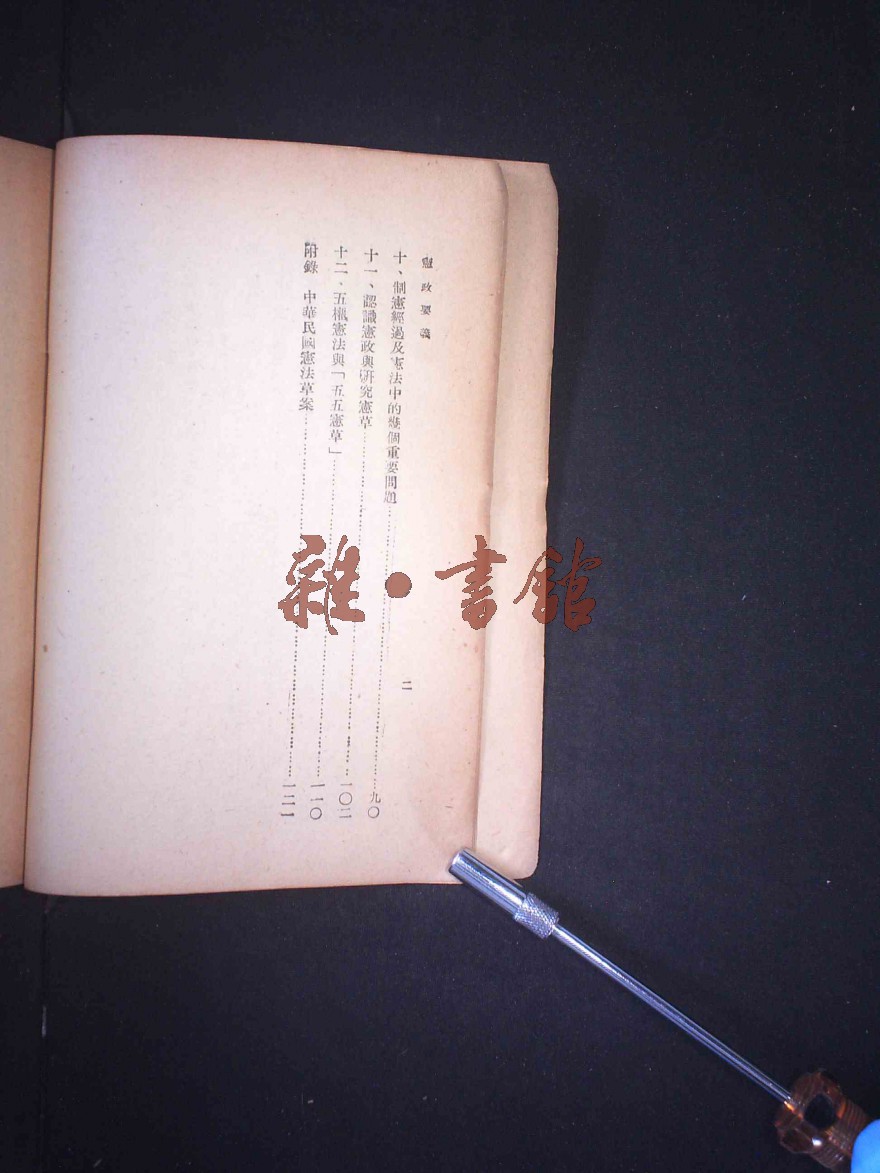 憲政要義
二
十、制憲經過及憲法中的幾個重要問題……九〇
十一、認識憲政與研究憲草……一〇二
十二、五權憲法與「五五憲草」……一一〇
附錄 中華民國憲法草案……一二一
雜·書館